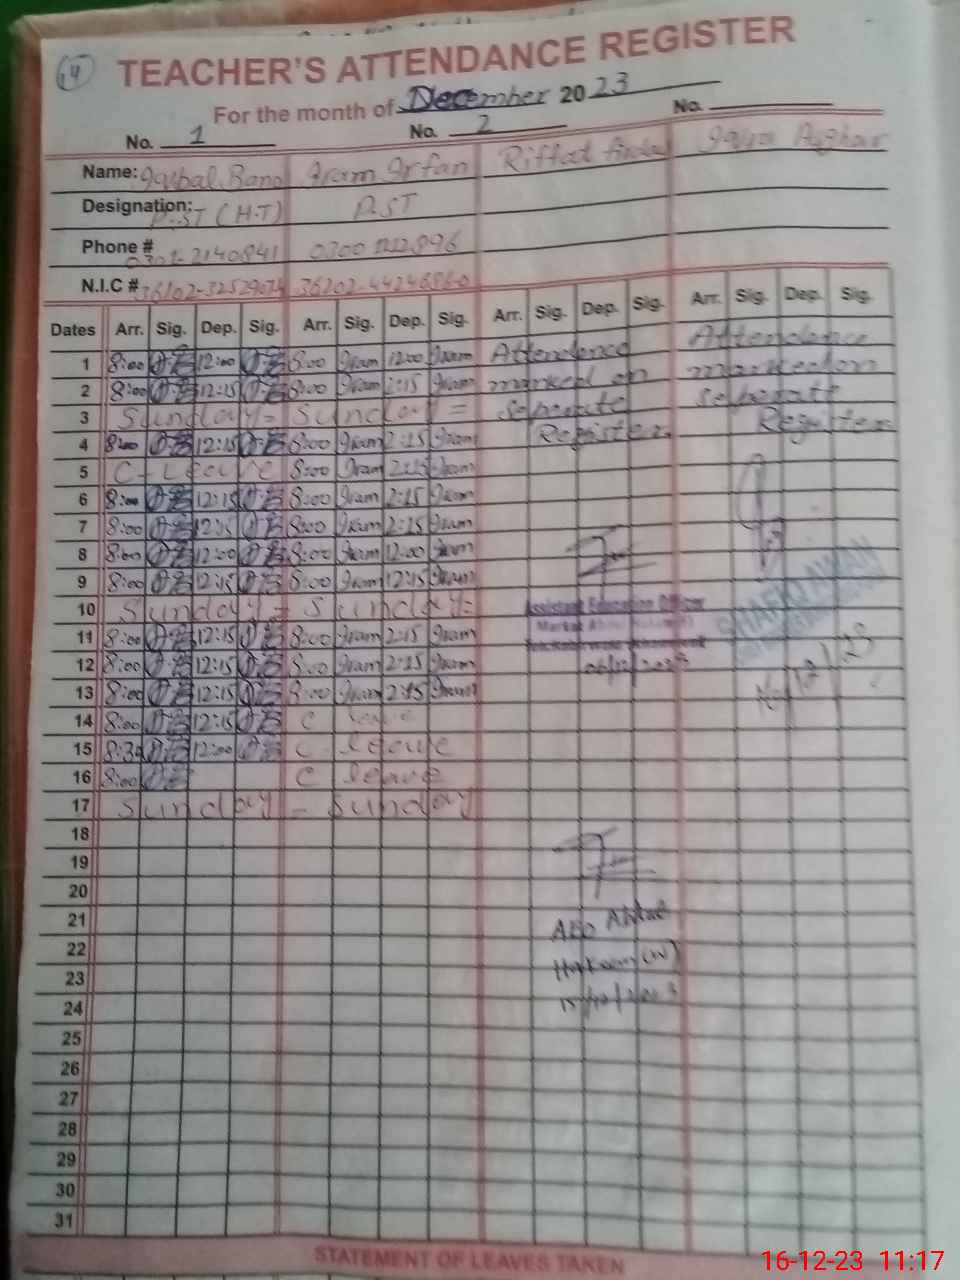 14
TEACHER'S ATTENDANCE REGISTER
For the month of December 2023
No. 1 No. 2 No.
Name: Iqbal Bano Iram Irfan Riffat Iqra Asghar
Designation: P.ST (H.T) P.ST
Phone # 0301-2140841
N.I.C #
Dates Arr. Sig. Dep. Sig. Arr. Sig. Dep. Sig. Arr. Sig. Dep. Sig. Arr. Sig. Dep. Sig.
1 8:00 12:00 8:00 Iram 12:00 Iram Attendence Attendence
2 8:00 12:15 8:00 Iram 2:15 Iram marked on marked on
3 Sunday = Sunday = seherate seherate
4 8:00 12:15 8:00 Iram 2:15 Iram Register Register
5 C-Leave 8:00 Iram 2:15 Iram
6 8:00 12:15 8:00 Iram 2:15 Iram
7 8:00 12:15 8:00 Iram 2:15 Iram
8 8:00 12:00 8:00 Iram 12:00 Iram
9 8:00 12:15 8:00 Iram 12:15 Iram
10 Sunday = Sunday =
Assistant Education Officer
SHAFIQ AWAN
11 8:00 12:15 8:00 Iram 2:15 Iram
12 8:00 12:15 8:00 Iram 2:15 Iram
06/12/2023
13 8:00 12:15 8:00 Iram 2:15 Iram
14 8:00 12:15 C leave
15 8:30 12:00 C leave
16 8:00 C leave
17 Sunday - Sunday
18
19
20
21
AEO Abdul
22
Hakeem (W)
23
15/12/2023
24
25
26
27
28
29
30
31
STATEMENT OF LEAVES TAKEN
16-12-23 11:17